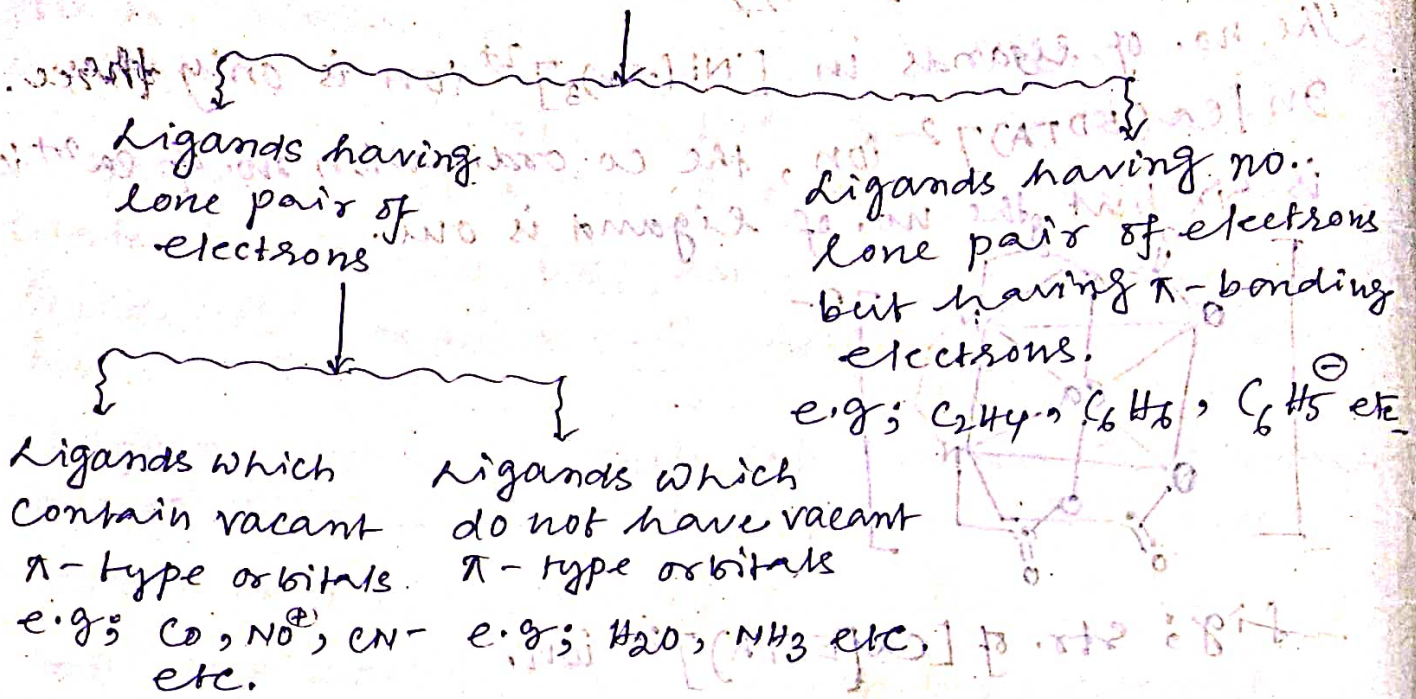 Ligands having
lone pair of
electrons
Ligands having no..
lone pair of electrons
but having π-bonding
electrons.
e.g; C2H4, C6H6, C6H5⊖ etc
Ligands which
contain vacant
π-type orbitals.
e.g; CO, NO⊕, CN-
etc.
Ligands which
do not have vacant
π-type orbitals
e.g; H2O, NH3 etc.